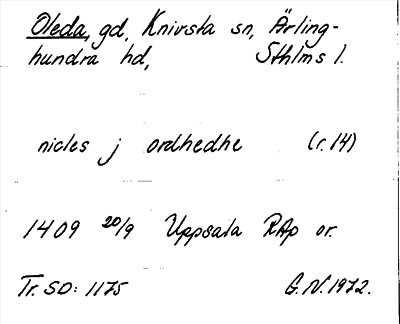 Oleda, gd, Knivsta sn, Ärling-
hundra hd, Sthlms l.
nicles j ordhedhe (r. 14)
1409 20/9 Uppsala RAp or.
Tr. SD: 1175 G.N. 1972.